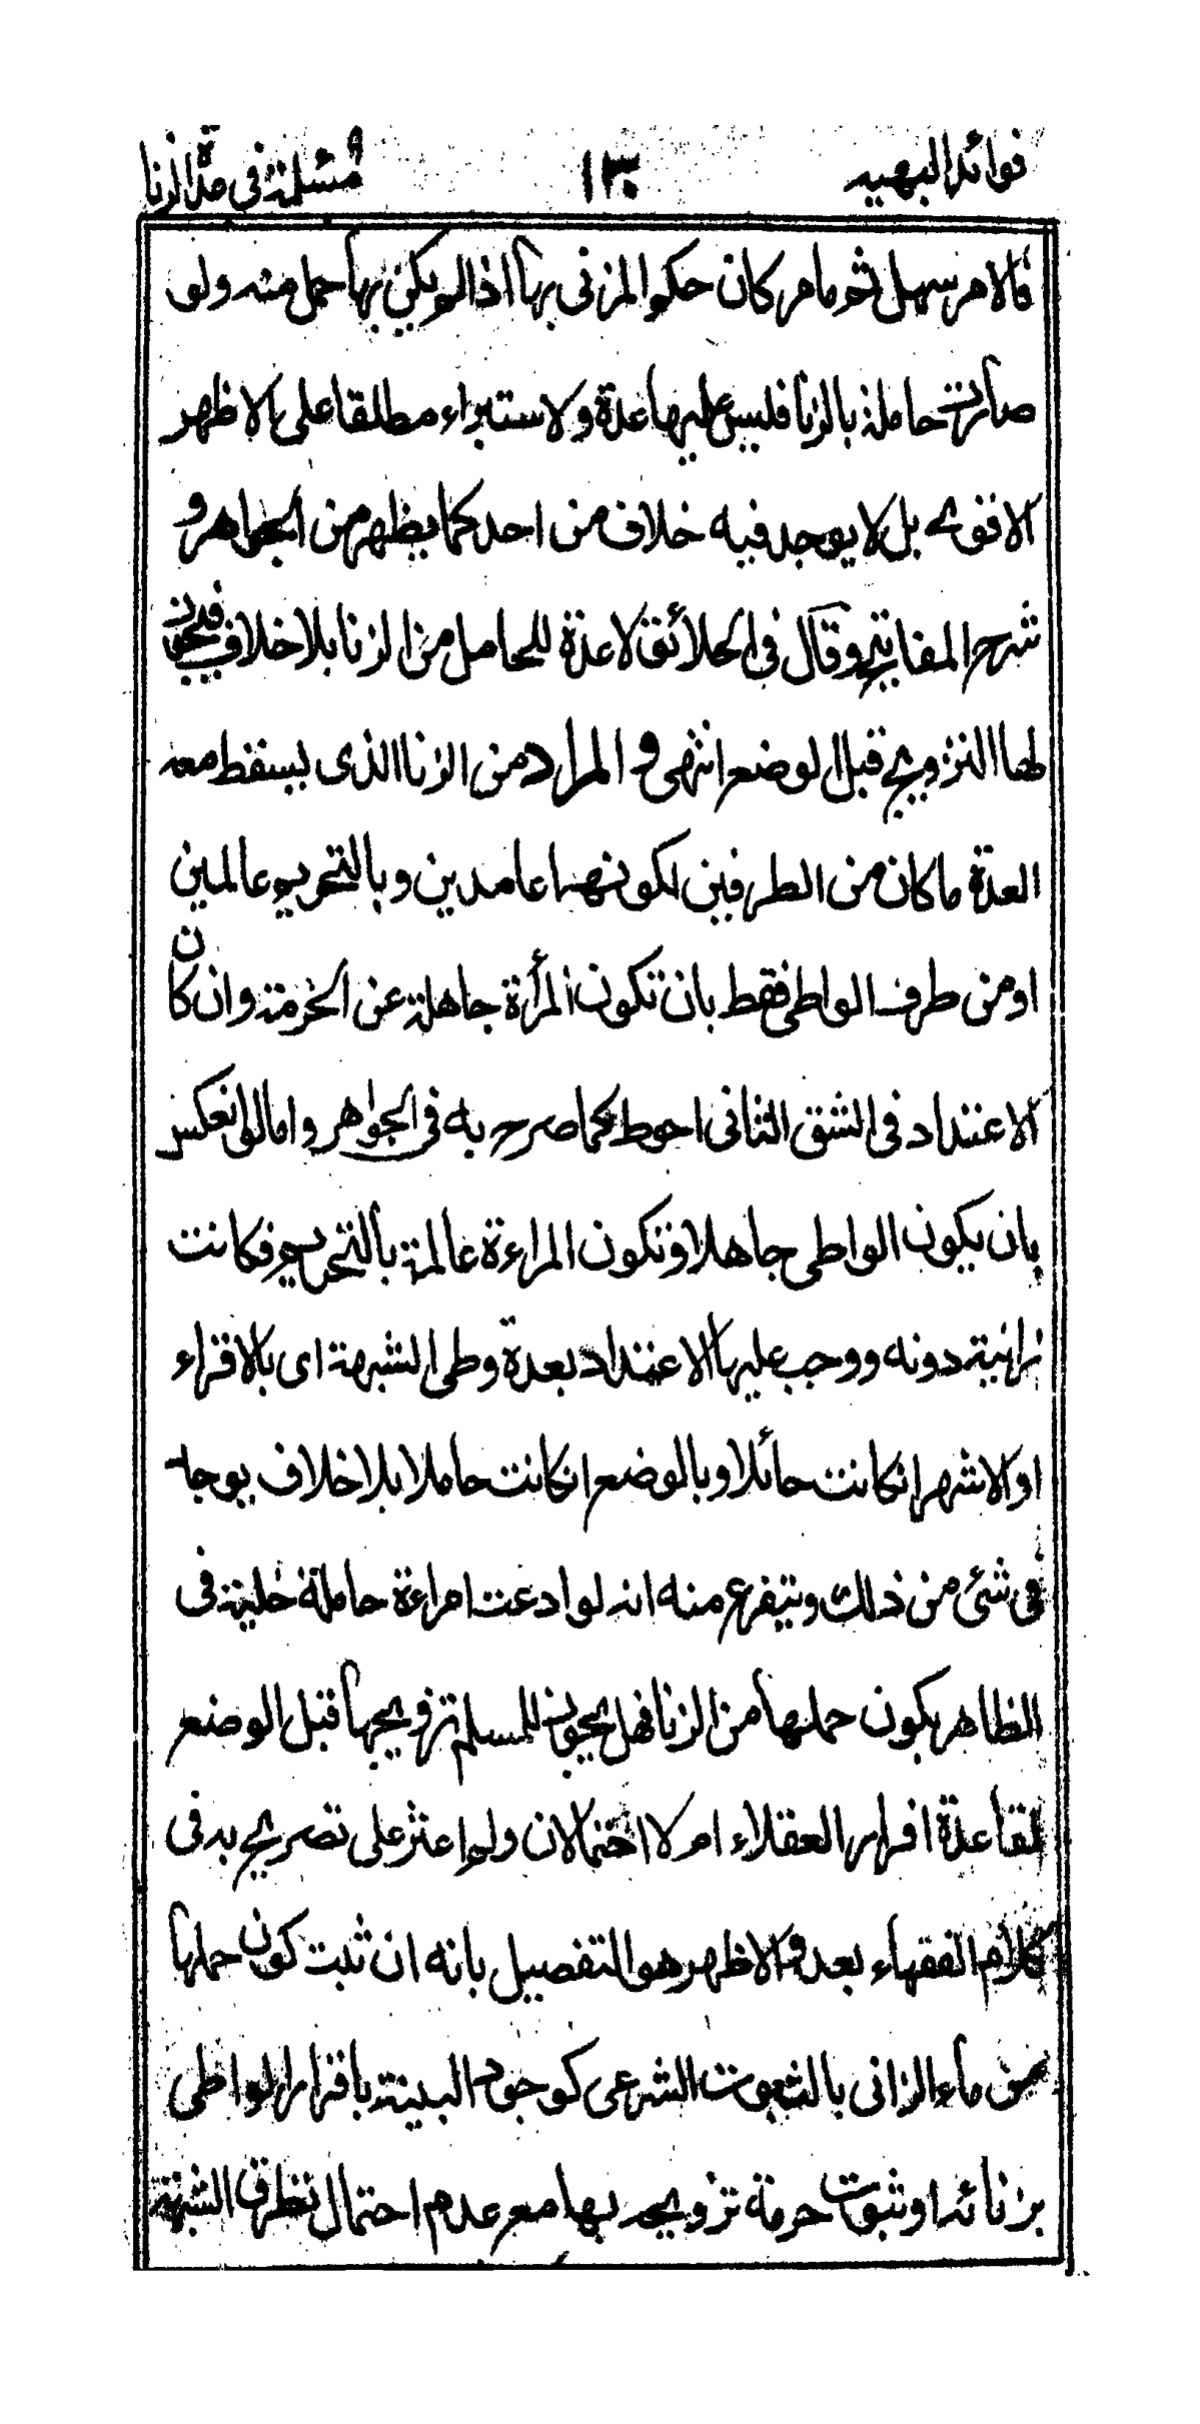 فوائد البهيه ١٣٠ مسئلة في عدة الزنا
فالامر سهل ثم ما مر كان حكم المزنى بها اذا لم يكن بها حمل منه ولو
صارت حاملة بالزنا فليس عليها عدة ولا استبراء مطلقا على الاظهر
الاقوى بل لا يوجد فيه خلاف من احد كما يظهر من الجواهر و
شرح المفاتيح وقال فى الحدائق لا عدة للحامل من الزنا بلا خلاف فيجوز
لها التزويج قبل الوضع انتهى و المراد من الزنا الذى يسقط معه
العدة ما كان من الطرفين لكونهما عامدين وبالتحريم عالمين
او من طرف الواطى فقط بان تكون المرأة جاهلة عن الحرمة وان كان
الاعتداد فى الشق الثانى احوط كما صرح به فى الجواهر واما لو انعكس
بان يكون الواطى جاهلا وتكون المراءة عالمة بالتحريم فكانت
زانية دونه ووجب عليها الاعتداد بعدة وطى الشبهة اى بالاقراء
او الاشهر انكانت حائلا وبالوضع انكانت حاملا بلا خلاف يوجد
فى شئ من ذلك ويتفرع منه انه لو ادعت امراءة حاملة خلية فى
الظاهر بكون حملها من الزنا فهل يجوز للمسلم تزويجها قبل الوضع
لقاعدة اقرار العقلاء ام لا احتمالان ولم اعثر على تصريح به فى
كلام الفقهاء بعد و الاظهر هو التفصيل بانه ان ثبت كون حملها
من ماء الزانى بالثبوت الشرعى كوجود البينة باقرار الواطى
بزنائه او ثبوت حرمة تزويجه بها مع عدم احتمال تطرق الشبهة